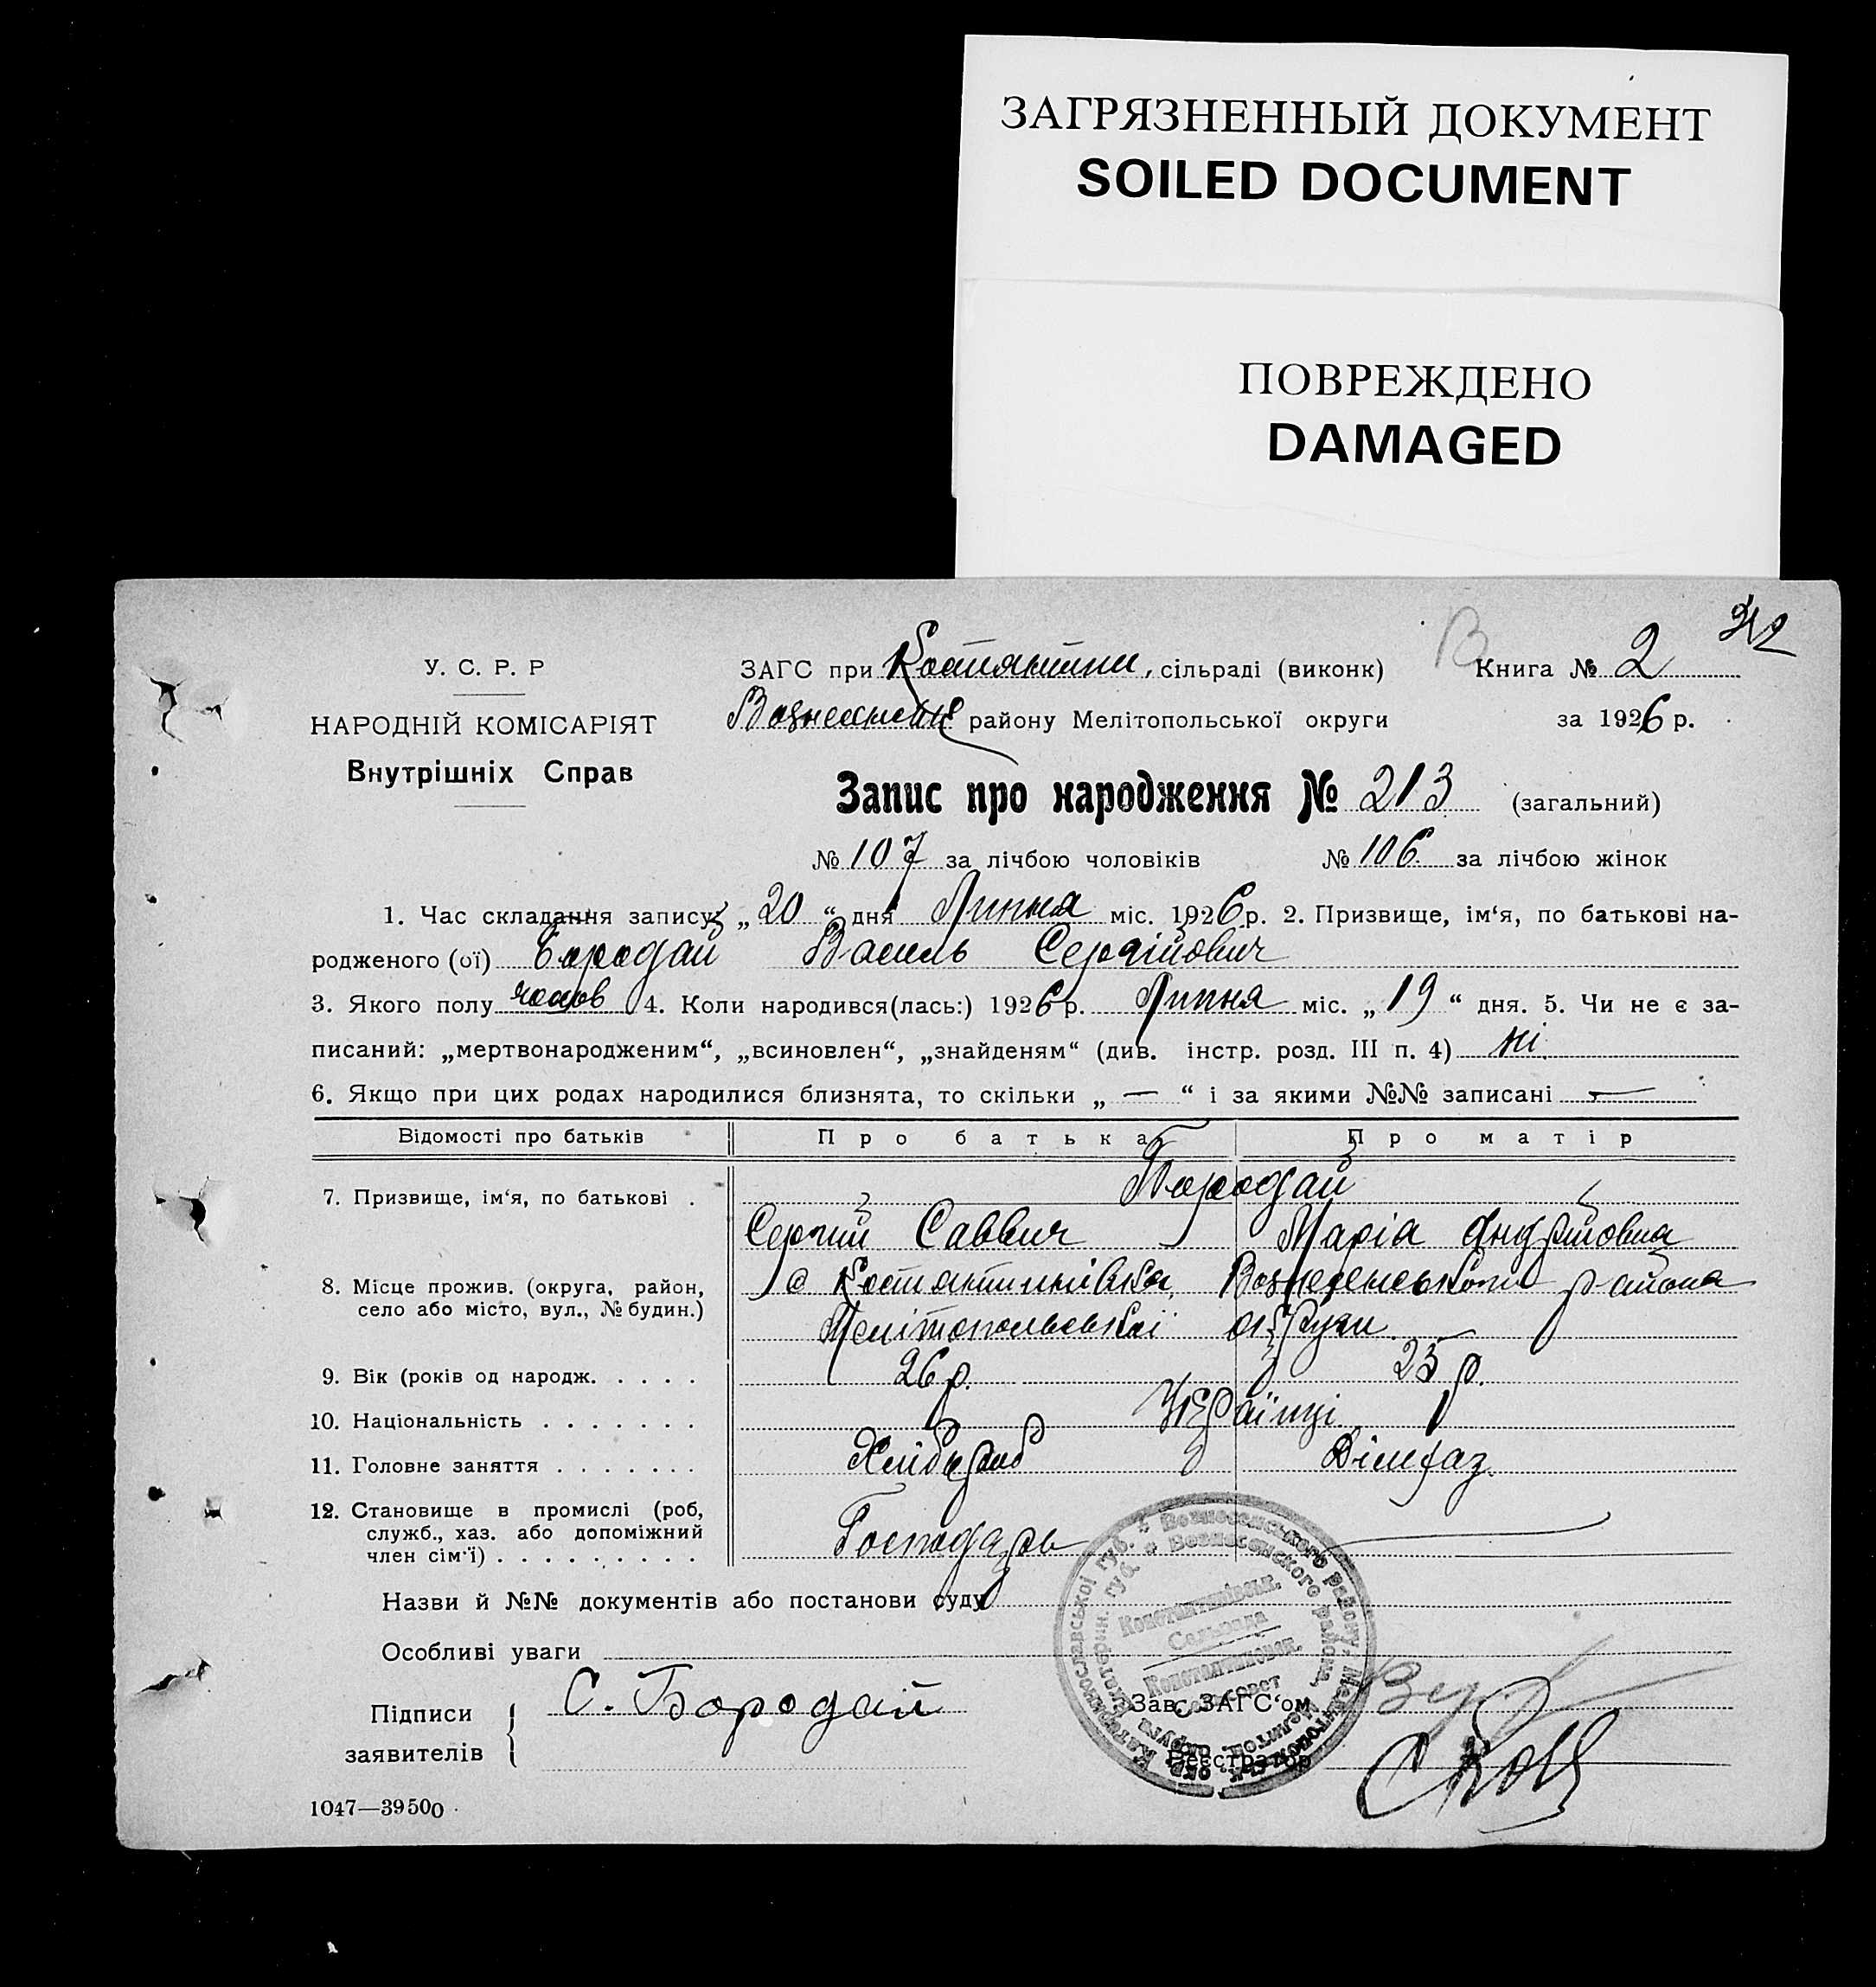 ЗАГРЯЗНЕННЫЙ ДОКУМЕНТ
SOILED DOCUMENT
ПОВРЕЖДЕНО
DAMAGED
У. С. Р. Р
НАРОДНІЙ КОМІСАРІЯТ
Внутрішніх Справ
ЗАГС при Костянтин. сільраді (виконк) Книга № 2
Вознесенськ району Мелітопольської округи за 1926 р.
Запис про народження № 213 (загальний)
№ 107 за лічбою чоловіків № 106 за лічбою жінок
1. Час складання запису „20“ дня Липня міс. 1926 р. 2. Призвище, ім‘я, по батькові на-
родженого (ої) Бородай Василь Сергійович
3. Якого полу чолов 4. Коли народився(лась:) 1926 р. Липня міс. „19“ дня. 5. Чи не є за-
писаний: „мертвонародженим“, „всиновлен“, „знайденям“ (див. інстр. розд. III п. 4) ні.
6. Якщо при цих родах народилися близнята, то скільки „ — “ і за якими №№ записані —
Відомості про батьків Про батька Про матір
7. Призвище, ім‘я, по батькові . Бородай
Сергий Саввич Марія Андрійовна
8. Місце прожив. (округа, район, село або місто, вул., № будин.) с Костянтинівка, Вознесенського района
Мелітопольської округи.
9. Вік (років од народж. . . . . 26 р. 25 р.
10. Національність . . . . . . . Українці
11. Головне заняття . . . . . . . Хлібороб
12. Становище в промислі (роб, служб., хаз. або допоміжний член сім‘ї) . . . . . . . . . Господарь
Назви й №№ документів або постанови суду
Особливі уваги
Підписи заявителів С. Бородай
Зав. ЗАГС‘ом
Реєстратор
Катеринославської губ. * Вознесенського району, Мелітопольськ. окр.
Екатерин. губ. * Вознесенского района, Мелитоп. округа
Константинівськ.
Сельрада
Константиновск.
Сельсовет
1047—39500